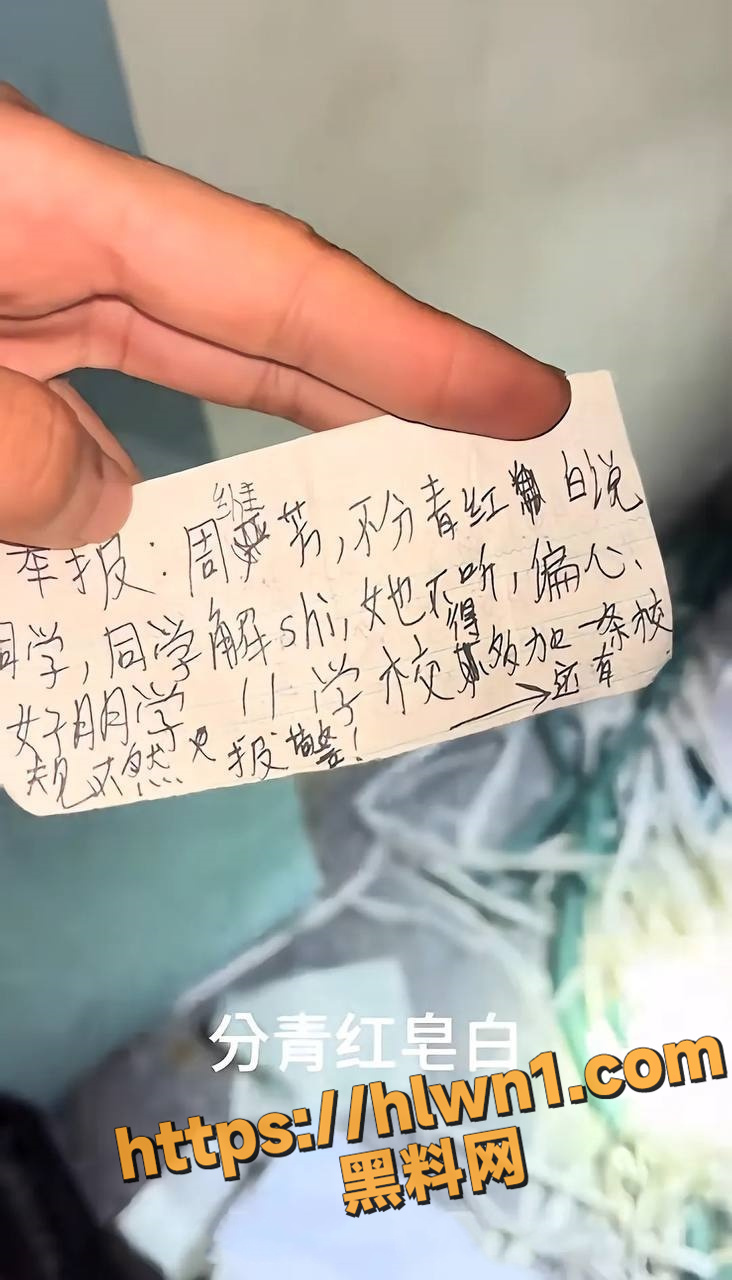 维
举报:周芳,不分青红 白说
同学,同学解shi,她不听,偏心、
好朋学 !!学校得多加一条校
规 不然 报警! 还有
分青红皂白
https://hlwn1.com
黑料网